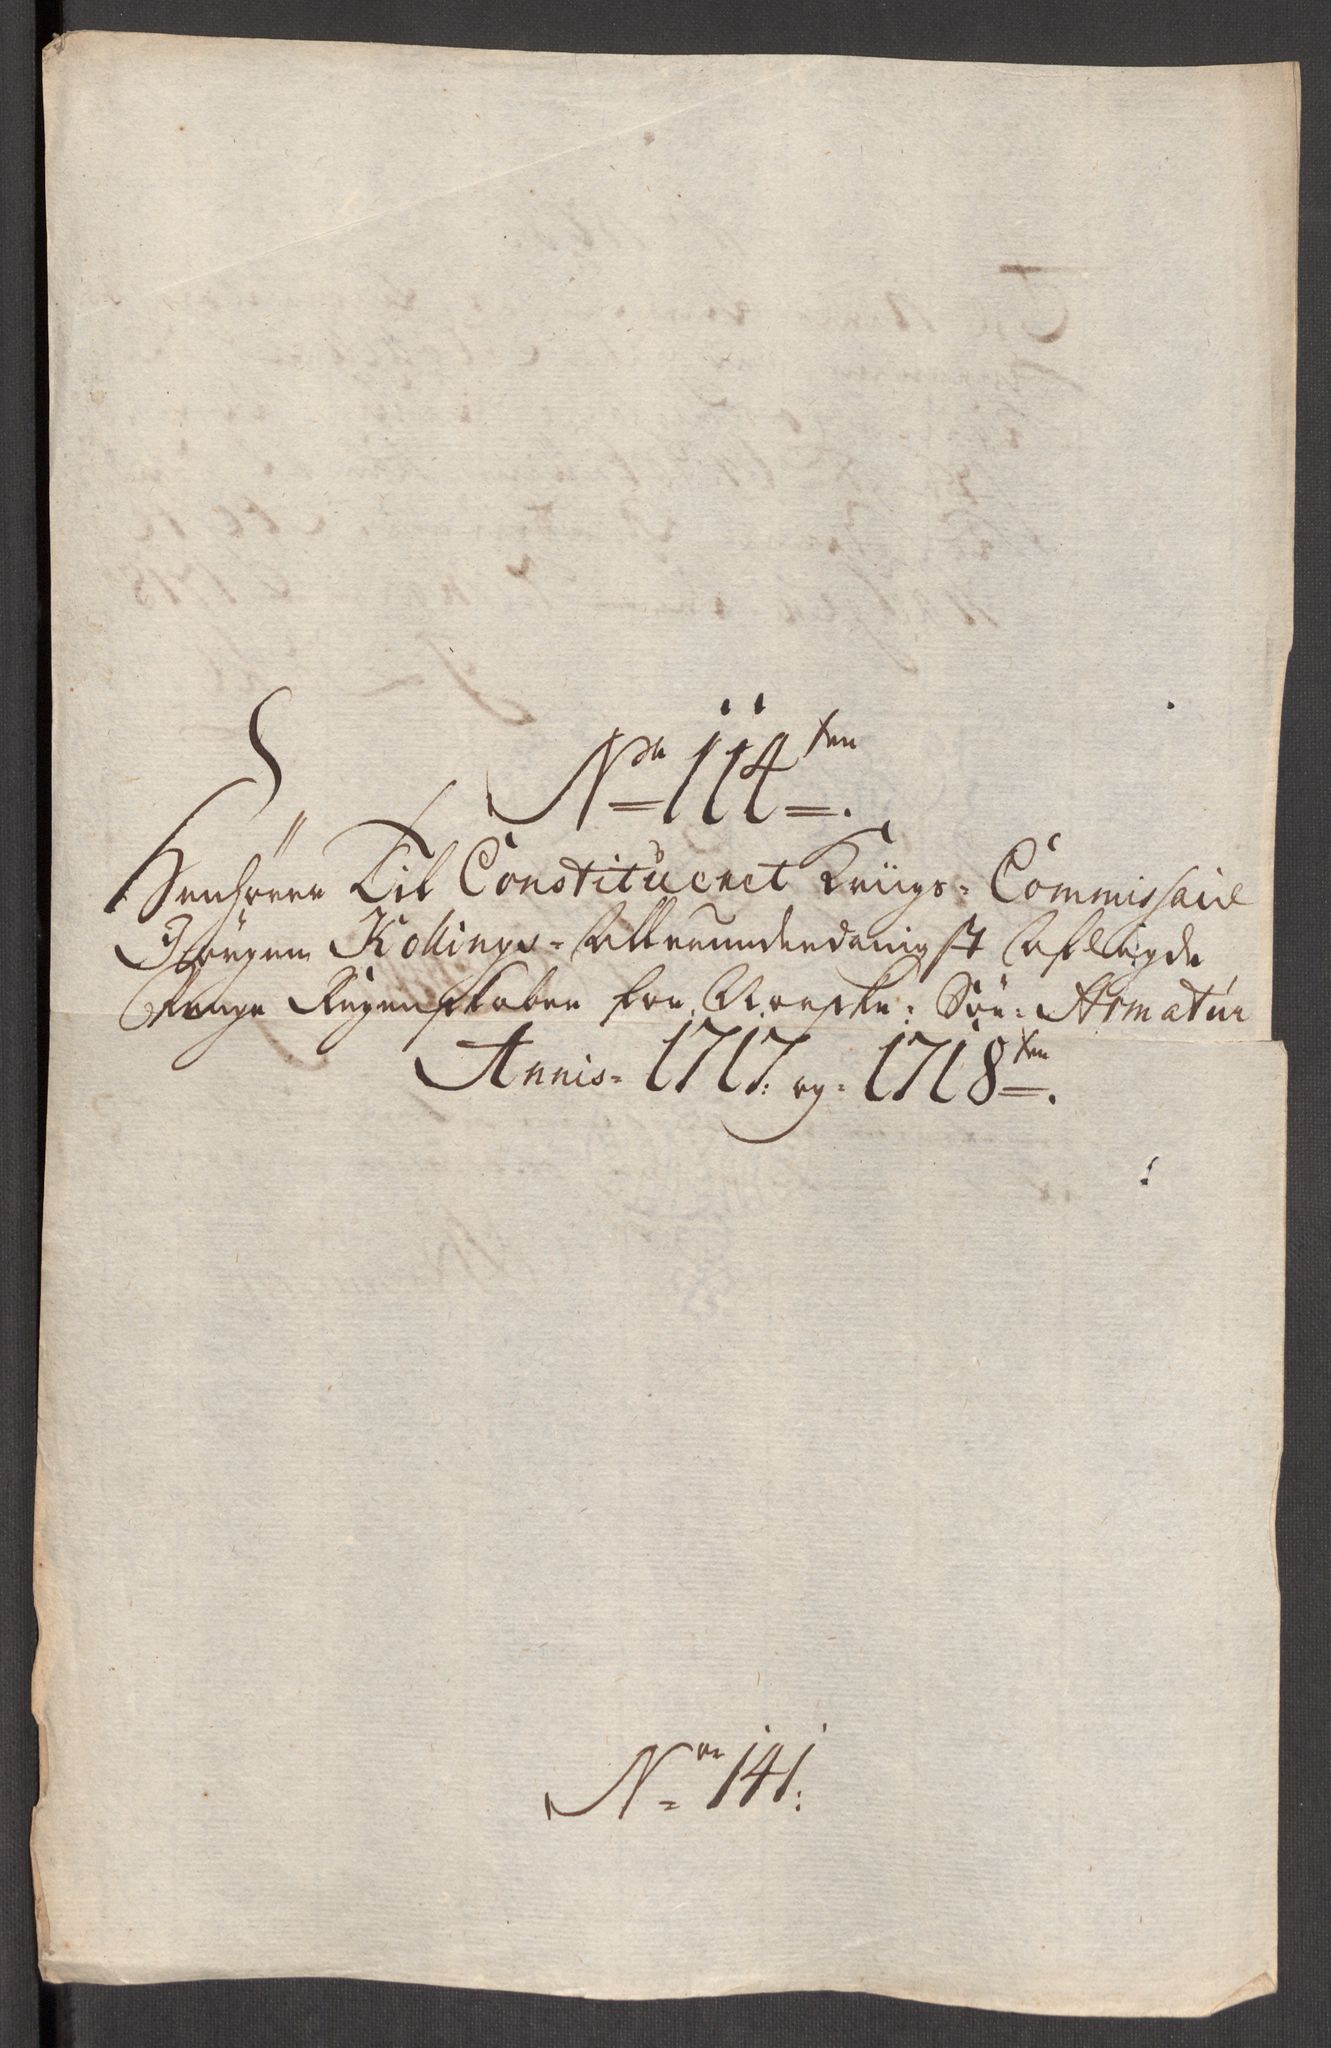 No 114ten
Henhörer Til Constitueret Kriigs-Commissaire
Jörgen Kollings-Allerunderdanigst Aflagde
Penge Regenskaber for Norske: Söe: Armatur
Annis= 1717: og= 1718ten
No 141: